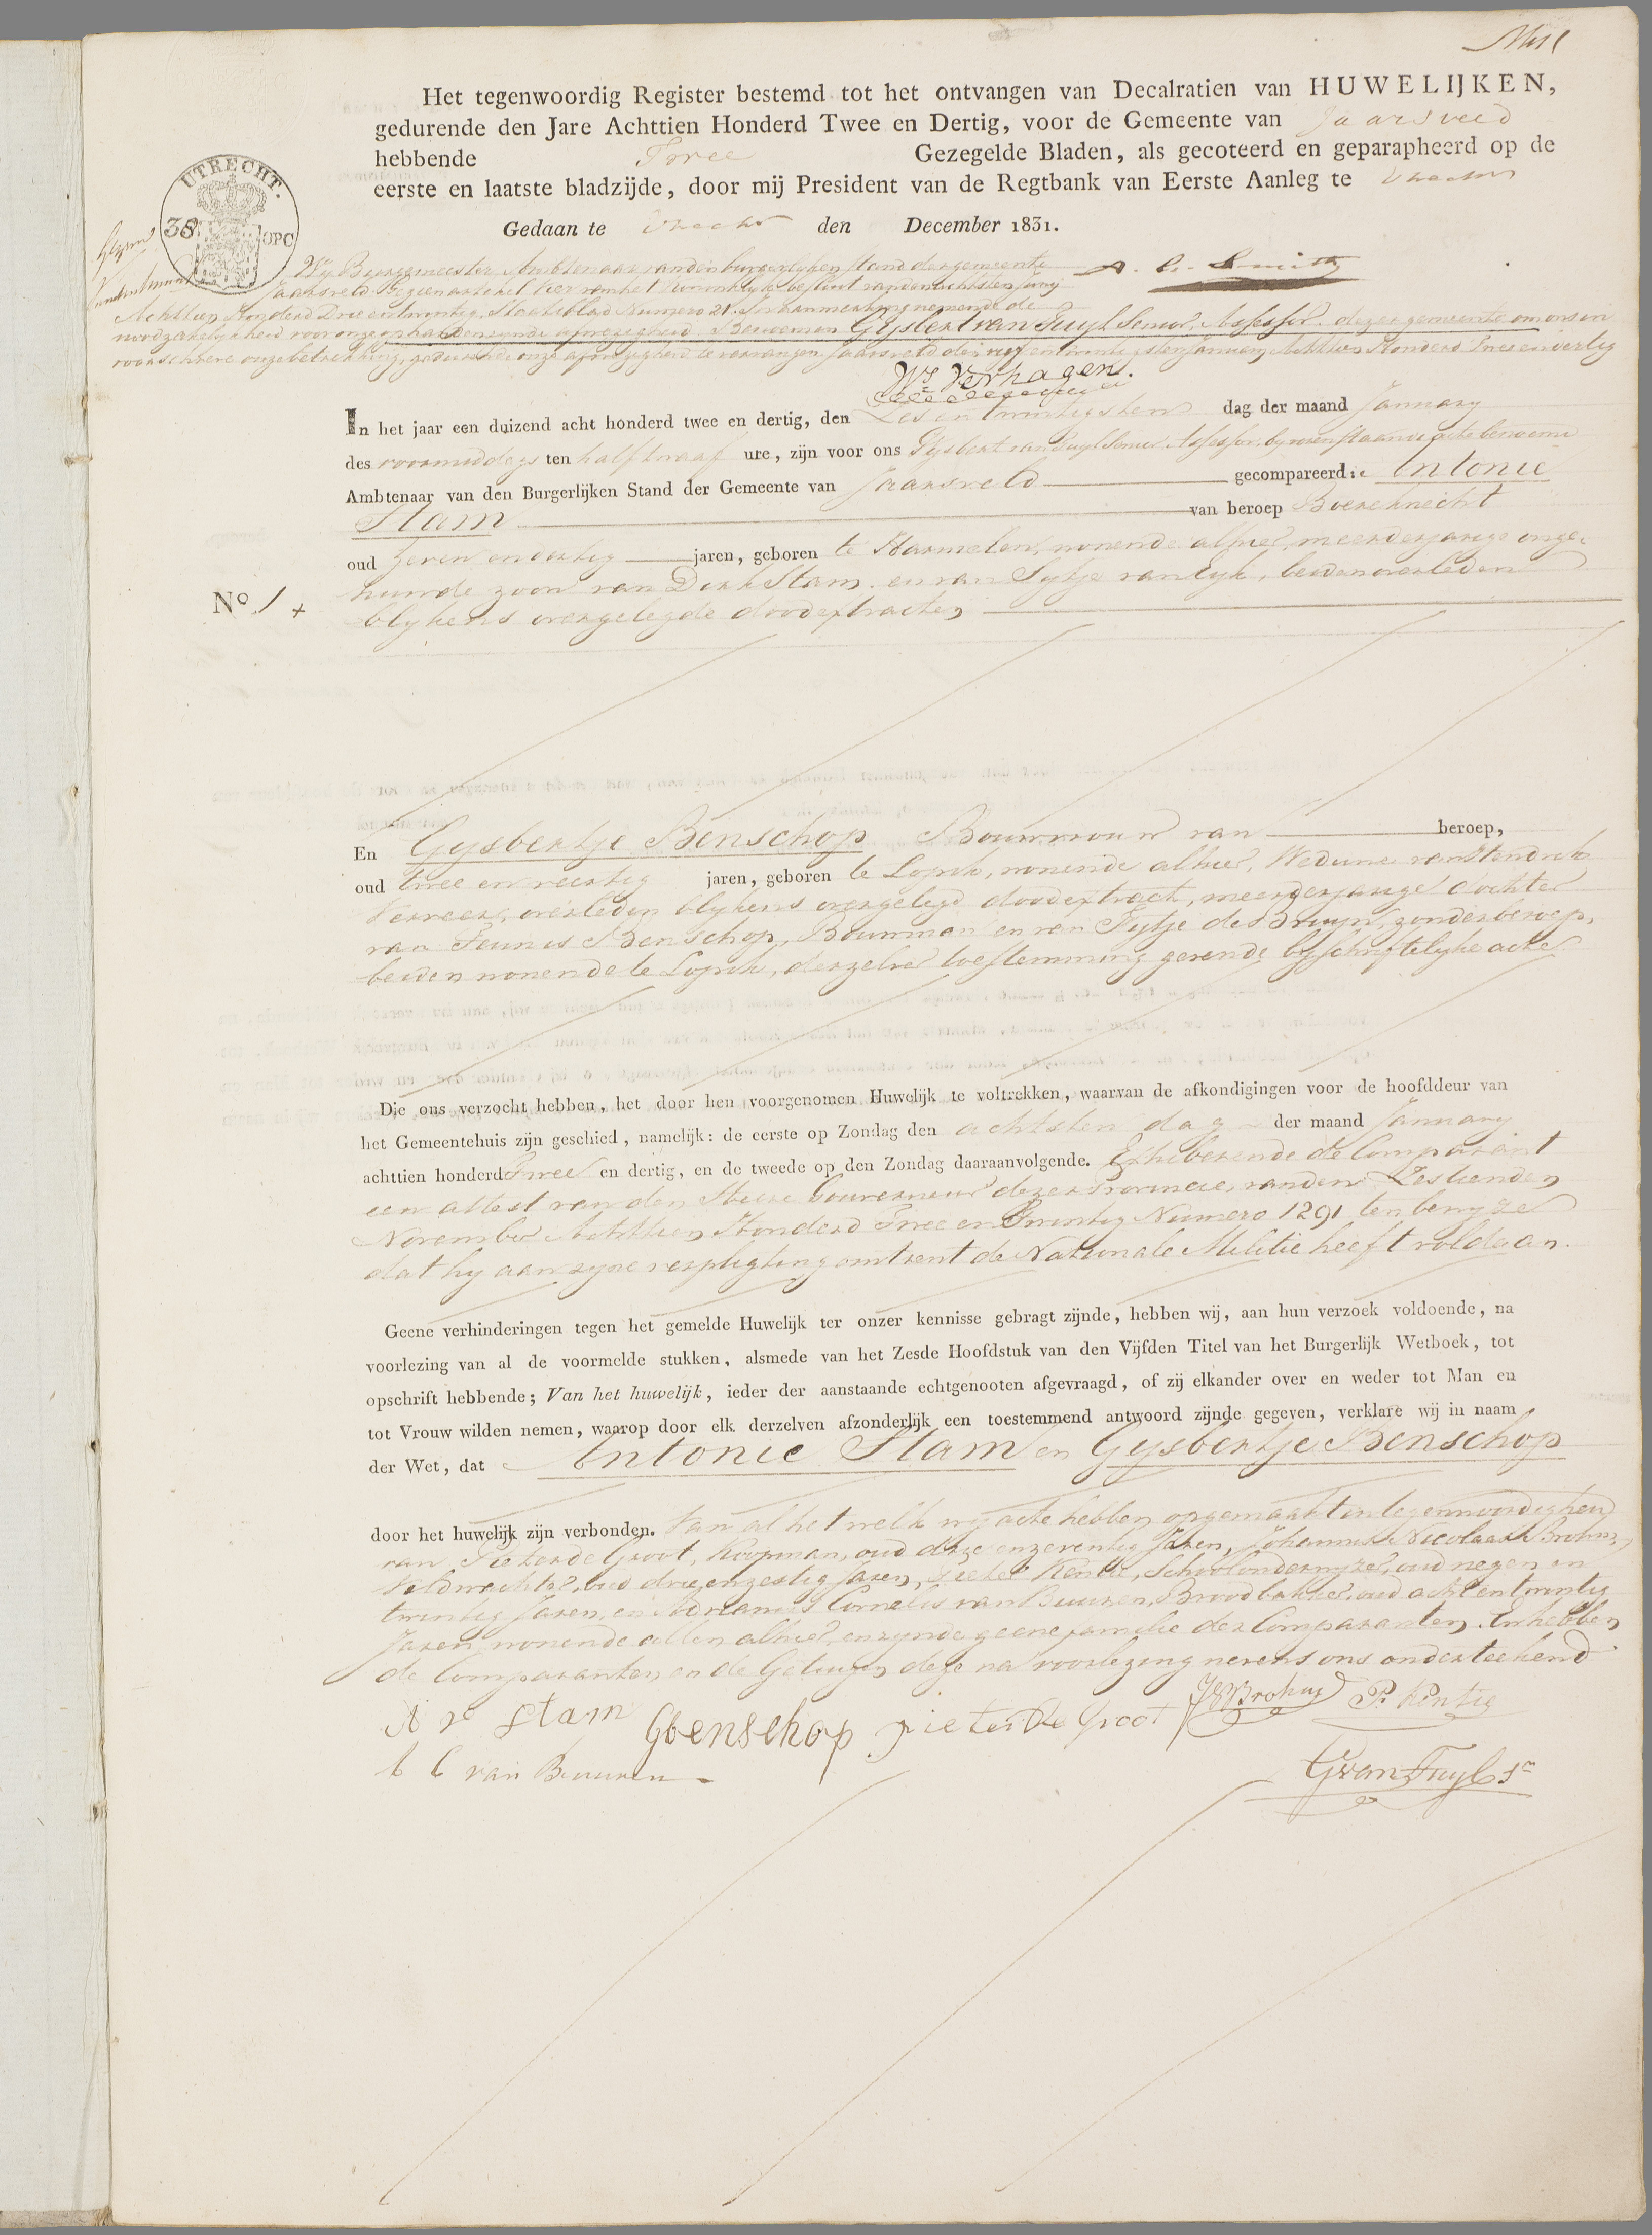 Het tegenwoordig Register bestemd tot het ontvangen van Decalratien van HUWELIJKEN,
gedurende den Jare Achttien Honderd Twee en Dertig, voor de Gemeente van Jaarsveld
hebbende Twee Gezegelde Bladen, als gecoteerd en geparapheerd op de
eerste en laatste bladzijde, door mij President van de Regtbank van Eerste Aanleg te Utrecht
UTRECHT.
38 OPC
Gedaan te Utrecht den December 1831.
Wij Burgemeester Ambtenaar van den burgerlyken stand der gemeente
Jaarsveld Gezien artikel vier van het Koninklyk besluit van den achtsten Juny
Achttien Honderd Drie en twintig, Staatsblad Numero 21. In aanmerking nemende de
noodzakelykheid voor onze op handen zynde afwezigheid Benoemen Gysbert van Tuyl Senior, Assessor dezer gemeente om ons in
voorschrevene onze betrekking, gedurende onze afwezigheid te vervangen Jaarsveld den vyf en twintigsten January Achttien Honderd Twee en dertig
Ws Verhagen.
In het jaar een duizend acht honderd twee en dertig, den Zes en twintigsten dag der maand January
des voormiddags ten half twaalf ure, zijn voor ons Gysbert van Tuyl Senior Assessor, by bovenstaande acte benoemd
Ambtenaar van den Burgerlijken Stand der Gemeente van Jaarsveld gecompareerd: Antonie
Stam van beroep Boereknecht
oud Zeven en dertig jaren, geboren te Harmelen, wonende alhier, meerderjarige onge-
N° 1 +
huwde zoon van Dirk Stam en van Sytje van Eyk, beiden overleden
blykens overgelegde doodextracten
En Gysbertje Benschop Bouwvrouw van beroep,
oud twee en veertig jaren, geboren te Lopik, wonende alhier, Weduwe van Hendrik
Verweer, overleden blykens overgelegd doodextract, meerderjarige dochter
van Teunis Benschop, Bouwman en van Fytje de Bruyn, zonder beroep,
beiden wonende te Lopik, derzelver toestemming gevende by schriftelyke acte
Die ons verzocht hebben, het door hen voorgenomen Huwelijk te voltrekken, waarvan de afkondigingen voor de hoofddeur van
het Gemeentehuis zijn geschied, namelijk: de eerste op Zondag den achtsten dag der maand January
achttien honderd Twee en dertig, en de tweede op den Zondag daaraanvolgende. Exhiberende de Comparant
een attest van den Heere Gouverneur dezer Provincie, van den Zestienden
November Achttien Honderd Twee en Twintig Numero 1291 ten bewyze
dat hy aan zyne verpligting omtrent de Nationale Militie heeft voldaan.
Geene verhinderingen tegen het gemelde Huwelijk ter onzer kennisse gebragt zijnde, hebben wij, aan hun verzoek voldoende, na
voorlezing van al de voormelde stukken, alsmede van het Zesde Hoofdstuk van den Vijfden Titel van het Burgerlijk Wetboek, tot
opschrift hebbende; Van het huwelijk, ieder der aanstaande echtgenooten afgevraagd, of zij elkander over en weder tot Man en
tot Vrouw wilden nemen, waarop door elk derzelven afzonderlijk een toestemmend antwoord zijnde gegeven, verklare wij in naam
der Wet, dat Antonie Stam en Gysbertje Benschop
door het huwelijk zijn verbonden. Van al het welk wij acte hebben opgemaakt in tegenwoordigheid
van Pieter de Groot, Koopman, oud drie en zeventig Jaren, Johannes Nicolaas Brohm,
Veldwachter, oud drie en zestig Jaren, Pieter Kentie, Schoolonderwyzer, oud negen en
twintig Jaren, en Adrianus Cornelis van Buuren, Broodbakker, oud acht en twintig
Jaren, wonende allen alhier, en zynde geene familie der Comparanten. En hebben
de Comparanten, en de Getuigen deze na voorlezing nevens ons onderteekend
Stam GBenschop pieter De Groot Brohm P. Kentie
A C van Buuren
G van Tuyl Sr